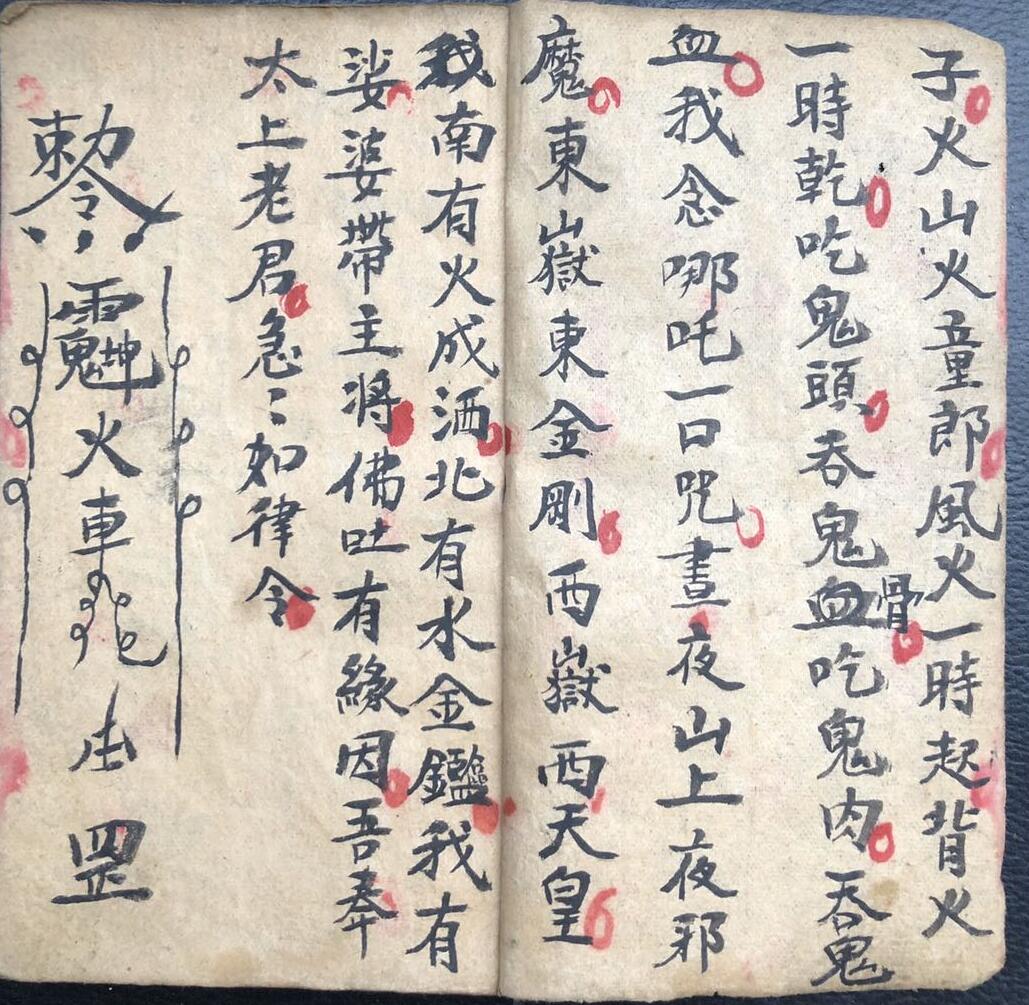 子火山火童郎風火一時起背火
一時乾吃鬼頭吞鬼血骨吃鬼肉吞鬼
血我念哪吒一口咒晝夜山上夜邪
魔東嶽東金剛西嶽西天皇
我南有火成洒北有水金鑑我有
娑婆帶主將佛吐有緣因吾奉
太上老君急〻如律令
勅令火車罡